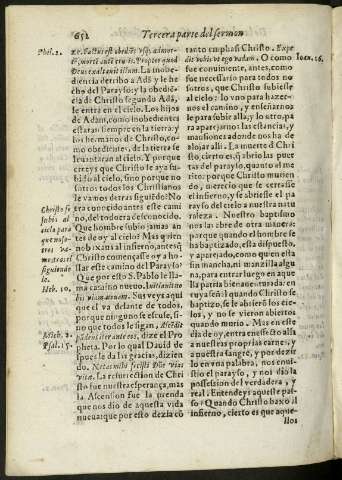 652 Tercera parte del sermon
Phil. 2.
re. Factus est obediēs vsq; ad mor-
tē, mortē autē crucis. Propter quod
Deus exaltauit illum. La inobe-
diencia derribo a Adā y le he
cho del Parayso: y la obedien-
cia de Christo segundo Adā,
le entra en el cielo. Los hijos
de Adam, como inobedientes
estaran siempre en la tierra, y
los hermanos de Christo, co-
mo obedientes, de la tierra se
leuantaran al cielo. Y porque
creeys que Christo le aya su-
bido al cielo, sino porque no
sotros todos los Christianos
le vamos detras siguiēdo? No
era conocido antes este cami
no, del todo era desconocido.
Christo se
subio al
cielo para
que noso-
tros va-
mos tras el
siguiendo
le.
Heb. 10.
Que hombre subio jamas an-
tes de oy al cielo? Mas quien
no baxaua al infierno, antes q̃
Christo començasse oy a ho-
llar este camino del Parayso?
Que por esto S. Pablo le lla-
ma camino nueuo. Initiauit no
bis viam nouam. Sus veys aqui
que el va delante de todos,
porque ninguno se escuse, si-
no que todos le sigan, Ascēdit
Mich. 2.
Psal. 15.
pandens iter ante eos, dize el Pro
pheta. Por lo qual Dauid de
spues le da las gracias, dizien
do. Notas mihi fecisti Dñe vias
vitæ. La resurrection de Chri
sto fue nuestra esperança, mas
la Ascension fue la prenda
que nos dio de aquesta vida
nueua: que por esto dezia cō
tanto emphasi Christo. Expe
dit vobis vt ego vadam. O como
Ioan. 16.
fue conuiniente, antes, como
fue necessario para todos no
sotros, que Christo subiesse
al cielo: lo vno para hazer-
nos el camino, y enseñarnos a
le para subir alla, y lo otro, pa
ra aparejarnos las estancias, y
mansiones adonde nos ha de
alojar alli. La muerte d̃ Chri
sto, cierto es, q̃ abrio la puer
tas del parayso, quanto al me
rito: porque Christo murien
do, merecio que se cerrasse
el infierno, y se abriesse el pa
rayso y cielo a nuestra natu
raleza. Nuestro baptismo
nos las abre de otra manera:
porque quando el hombre se
ha baptizado, esta dispuesto,
y aparejado, como quien esta
sin mancha, ni manzilla algu-
na, para entrar luego en aque
lla patria bienauenturada: en
cuya señal quando Christo se
baptizo, se le abrieron los cie-
los, y no se vieron abiertos
quando murio. Mas en este
dia de oy, entra en effecto assi
a nuestras proprias carnes, y
a nuestra sangre, y por dezir
lo en vna palabra, nos enui-
stio el parayso, y nos dio la
possession del verdadera, y
real. Entendeys aqueste pas-
so? Quando Christo baxo al
infierno, cierto es que aque-
llos